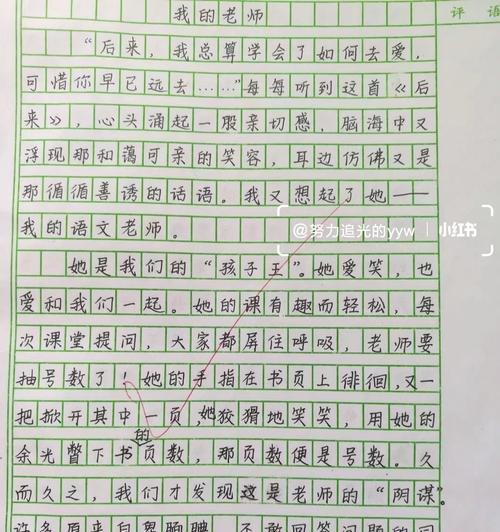 我的老师
评语
“后来，我总算学会了如何去爱，
可惜你早已远去……”每每听到这首《后
来》，心头涌起一股亲切感，脑海中又
浮现那和蔼可亲的笑容，耳边仿佛又是
那循循善诱的话语。我又想起了她——
我的语文老师。
@努力追光的yyw | 小红书
她是我们的“孩子王”。她爱笑，也
爱和我们一起。她的课有趣而轻松，每
次课堂提问，大家都屏住呼吸，老师要
抽号数了！她的手指在书页上徘徊，又一
把掀开其中一页，她狡猾地笑笑，用她的
余光瞥下书的页数，那页数便是号数。久
而久之，我们才发现这是老师的“阴谋”。
许多原来自卑腼腆、不敢回答问题的同